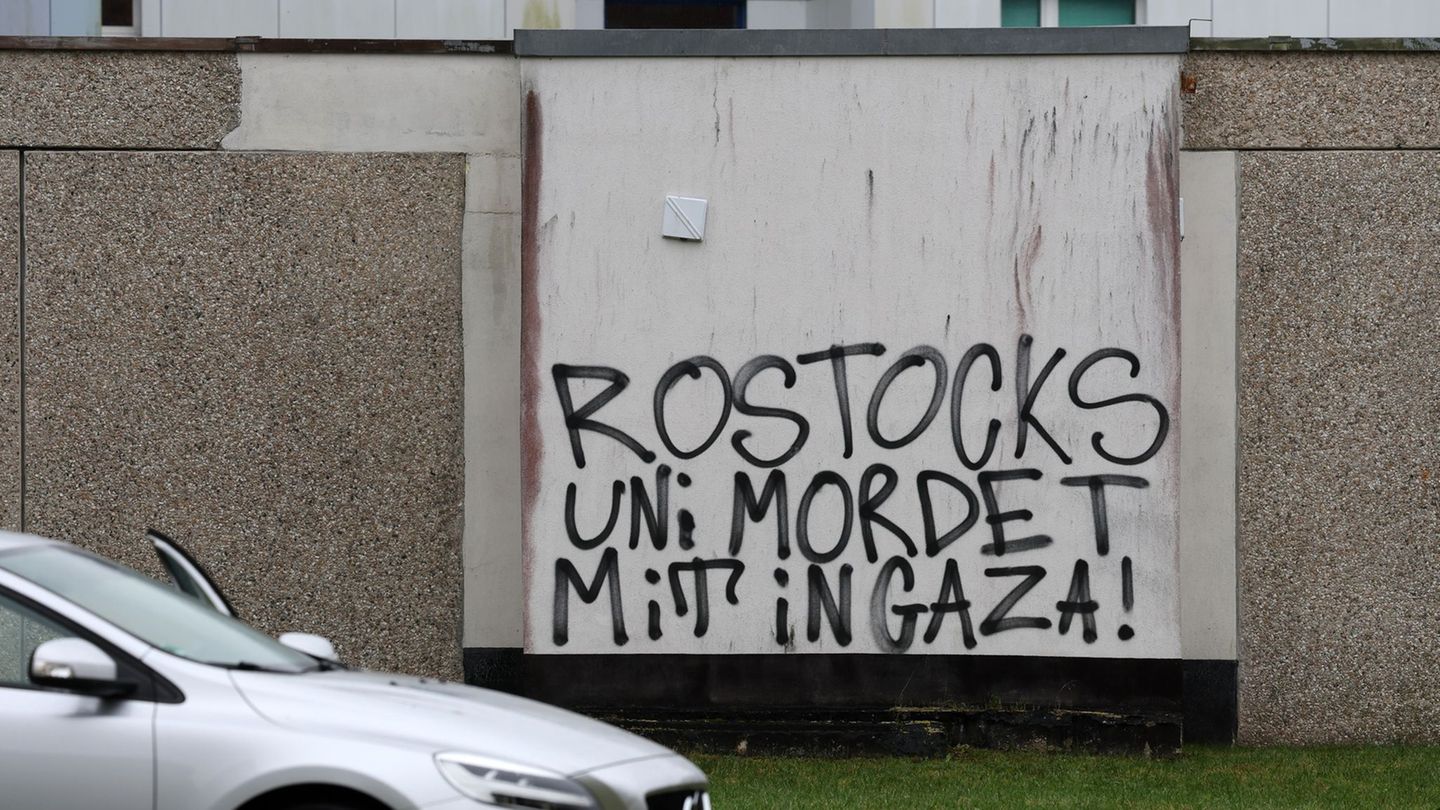 ROSTOCKS
UNi MORDET
MiT iN GAZA!